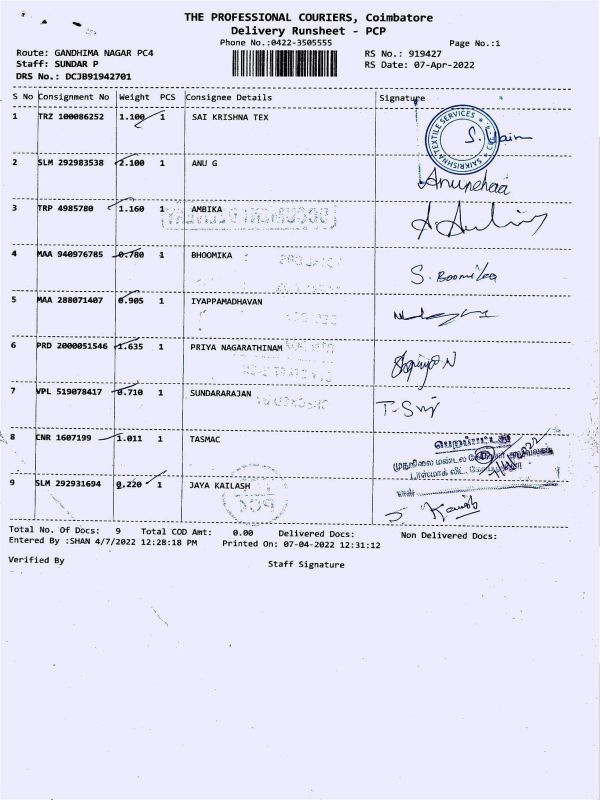 THE PROFESSIONAL COURIERS, Coimbatore
Delivery Runsheet - PCP
Phone No.:0422-3505555
Page No.:1
Route: GANDHIMA NAGAR PC4
RS No.: 919427
Staff: SUNDAR P
RS Date: 07-Apr-2022
DRS No.: DCJB91942701
S No Consignment No Weight PCS Consignee Details Signature
1 TRZ 100086252 1.100 1 SAI KRISHNA TEX
SAIKRISHNA TEXTILE SERVICES
2 SLM 292983538 2.100 1 ANU G
3 TRP 4985780 1.160 1 AMBIKA
DOCUMENT DELIVERY
4 MAA 940976785 0.780 1 BHOOMIKA
S. Boomika
5 MAA 288071407 0.905 1 IYAPPAMADHAVAN
6 PRD 2000051546 1.635 1 PRIYA NAGARATHINAM
7 VPL 519078417 0.710 1 SUNDARARAJAN
8 CNR 1607199 1.011 1 TASMAC
பெறப்பட்டது
9 SLM 292931694 0.220 1 JAYA KAILASH
Total No. Of Docs: 9 Total COD Amt: 0.00 Delivered Docs: Non Delivered Docs:
Entered By :SHAN 4/7/2022 12:28:18 PM Printed On: 07-04-2022 12:31:12
Verified By
Staff Signature